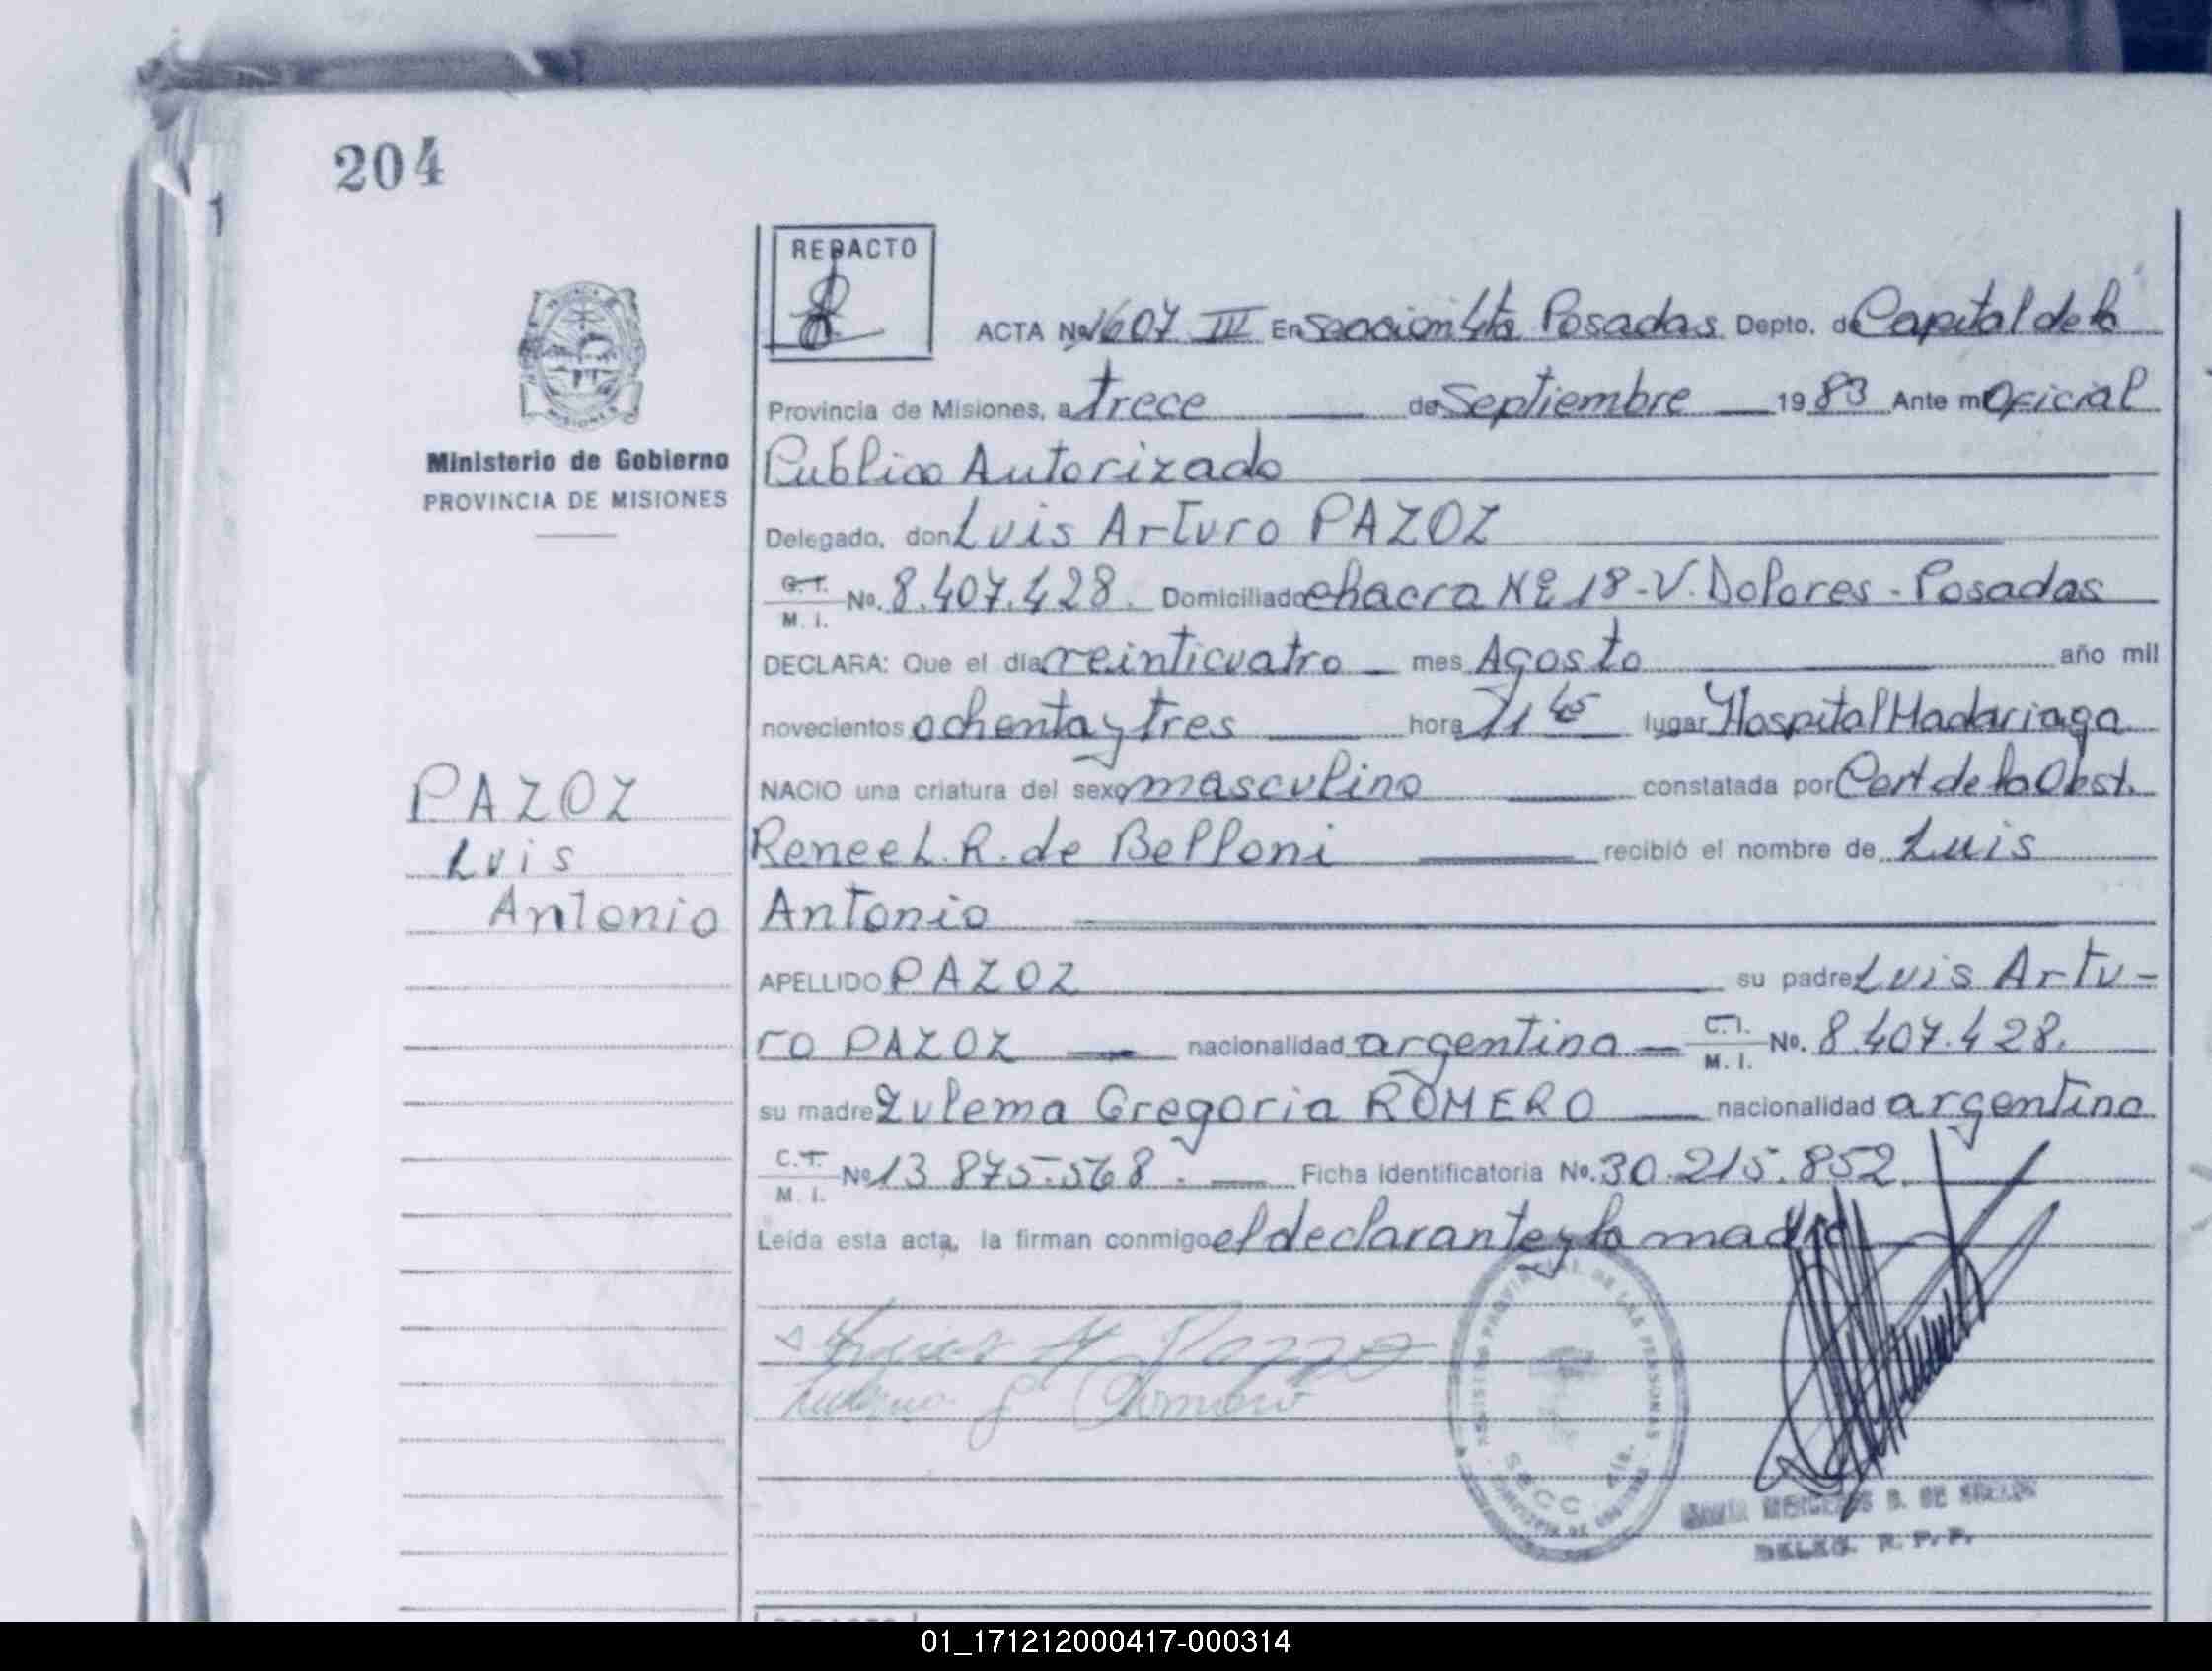 204
1
REDACTO
ACTA No. 1607 III En Seccion 4ta Posadas Depto. de Capital de la
Provincia de Misiones, a trece de Septiembre 1983 Ante mi Oficial
Ministerio de Gobierno
PROVINCIA DE MISIONES
Publico Autorizado
Delegado, don Luis Arturo PAZOZ
C.I. M. I. No. 8.407.428. Domiciliado chacra Nº 18-V. Dolores - Posadas
DECLARA: Que el día veinticuatro mes Agosto año mil
novecientos ochenta y tres hora 11 45 lugar Hospital Madariaga
NACIO una criatura del sexo masculino constatada por Cert de la Obst.
PAZOZ
Luis
Antonio
Renee L. R. de Belloni recibió el nombre de Luis
Antonio
APELLIDO PAZOZ su padre Luis Artu=
ro PAZOZ nacionalidad argentina C.I. M. I. No. 8.407.428.
su madre Zulema Gregoria ROMERO nacionalidad argentina
C.I. M. I. No 13.875.568. Ficha identificatoria No. 30.215.852.
Leída esta acta, la firman conmigo el declarante y la madre
REGISTRO PROVINCIAL DE LAS PERSONAS
SECC. 4ta.
MERCEDES B. DE
DELEG. R. P. P.
01_171212000417-000314